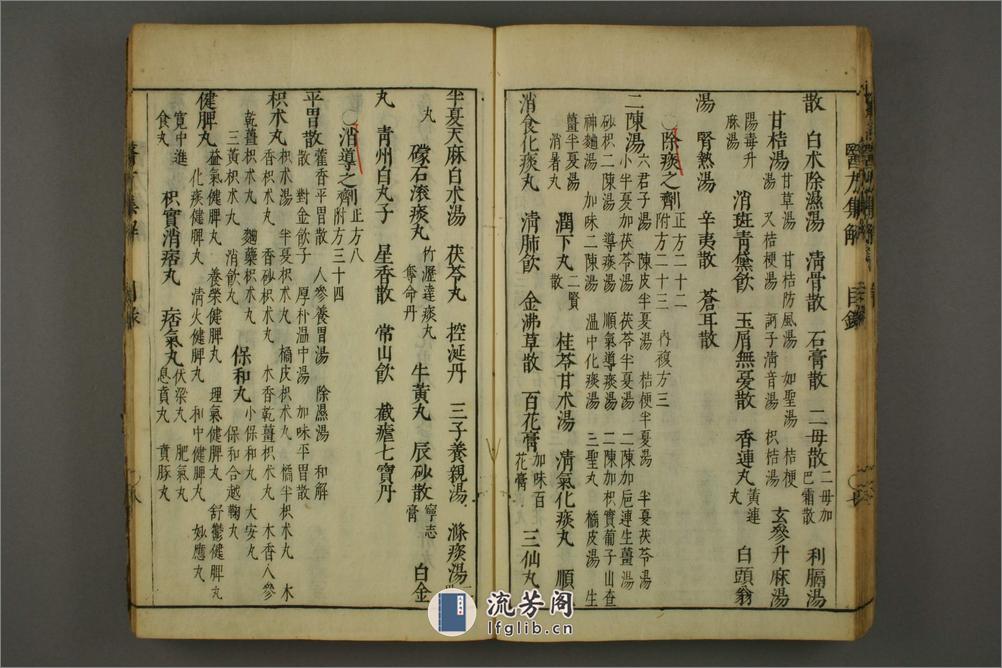 散　白朮除濕湯　清骨散　石膏散　二母散二母加巴霜散　利膈湯
甘桔湯甘草湯　甘桔防風湯　如聖湯　桔梗湯　又桔梗湯　訶子清音湯　枳桔湯　玄參升麻湯
陽毒升麻湯　消斑青黛飲　玉屑無憂散　香連丸黃連丸　白頭翁
湯　腎熱湯　辛夷散　蒼耳散
〇除痰之劑正方二十二　附方二十三　內複方三
二陳湯六君子湯　陳皮半夏湯　桔梗半夏湯　半夏茯苓湯
小半夏加茯苓湯　茯苓半夏湯　二陳加梔連生薑湯
砂枳二陳湯　導痰湯　順氣導痰湯　二陳加枳實蔔子山查
神麯湯　加味二陳湯　溫中化痰湯　三聖丸　橘皮湯　生
薑半夏湯　消暑丸　潤下丸二賢散　桂苓甘朮湯　清氣化痰丸　順
消食化痰丸　清肺飲　金沸草散　百花膏加味百花膏　三仙丸
半夏天麻白朮湯　茯苓丸　控涎丹　三子養親湯　滌痰湯
丸　礞石滾痰丸竹瀝達痰丸　奪命丹　牛黃丸　辰砂散寧志膏　白金
丸　青州白丸子　星香散　常山飲　截瘧七寶丹
〇消導之劑正方八　附方三十四
平胃散藿香平胃散　人參養胃湯　除濕湯　和解
散　對金飲子　厚朴溫中湯　加味平胃散
枳朮丸枳朮湯　半夏枳朮丸　橘皮枳朮丸　橘半枳朮丸　木
香枳朮丸　香砂枳朮丸　木香乾薑枳朮丸　木香人參
乾薑枳朮丸　麴蘗枳朮丸　保和丸小保和丸　大安丸
三黃枳朮丸　消飲丸　保和合越鞠丸
健脾丸益氣健脾丸　養榮健脾丸　理氣健脾丸　舒鬱健脾丸
化痰健脾丸　清火健脾丸　和中健脾丸　妙應丸
寬中進食丸　枳實消痞丸　痞氣丸伏梁丸　肥氣丸　息賁丸　賁豚丸
醫方集解　目錄
流芳閣
lfglib.cn